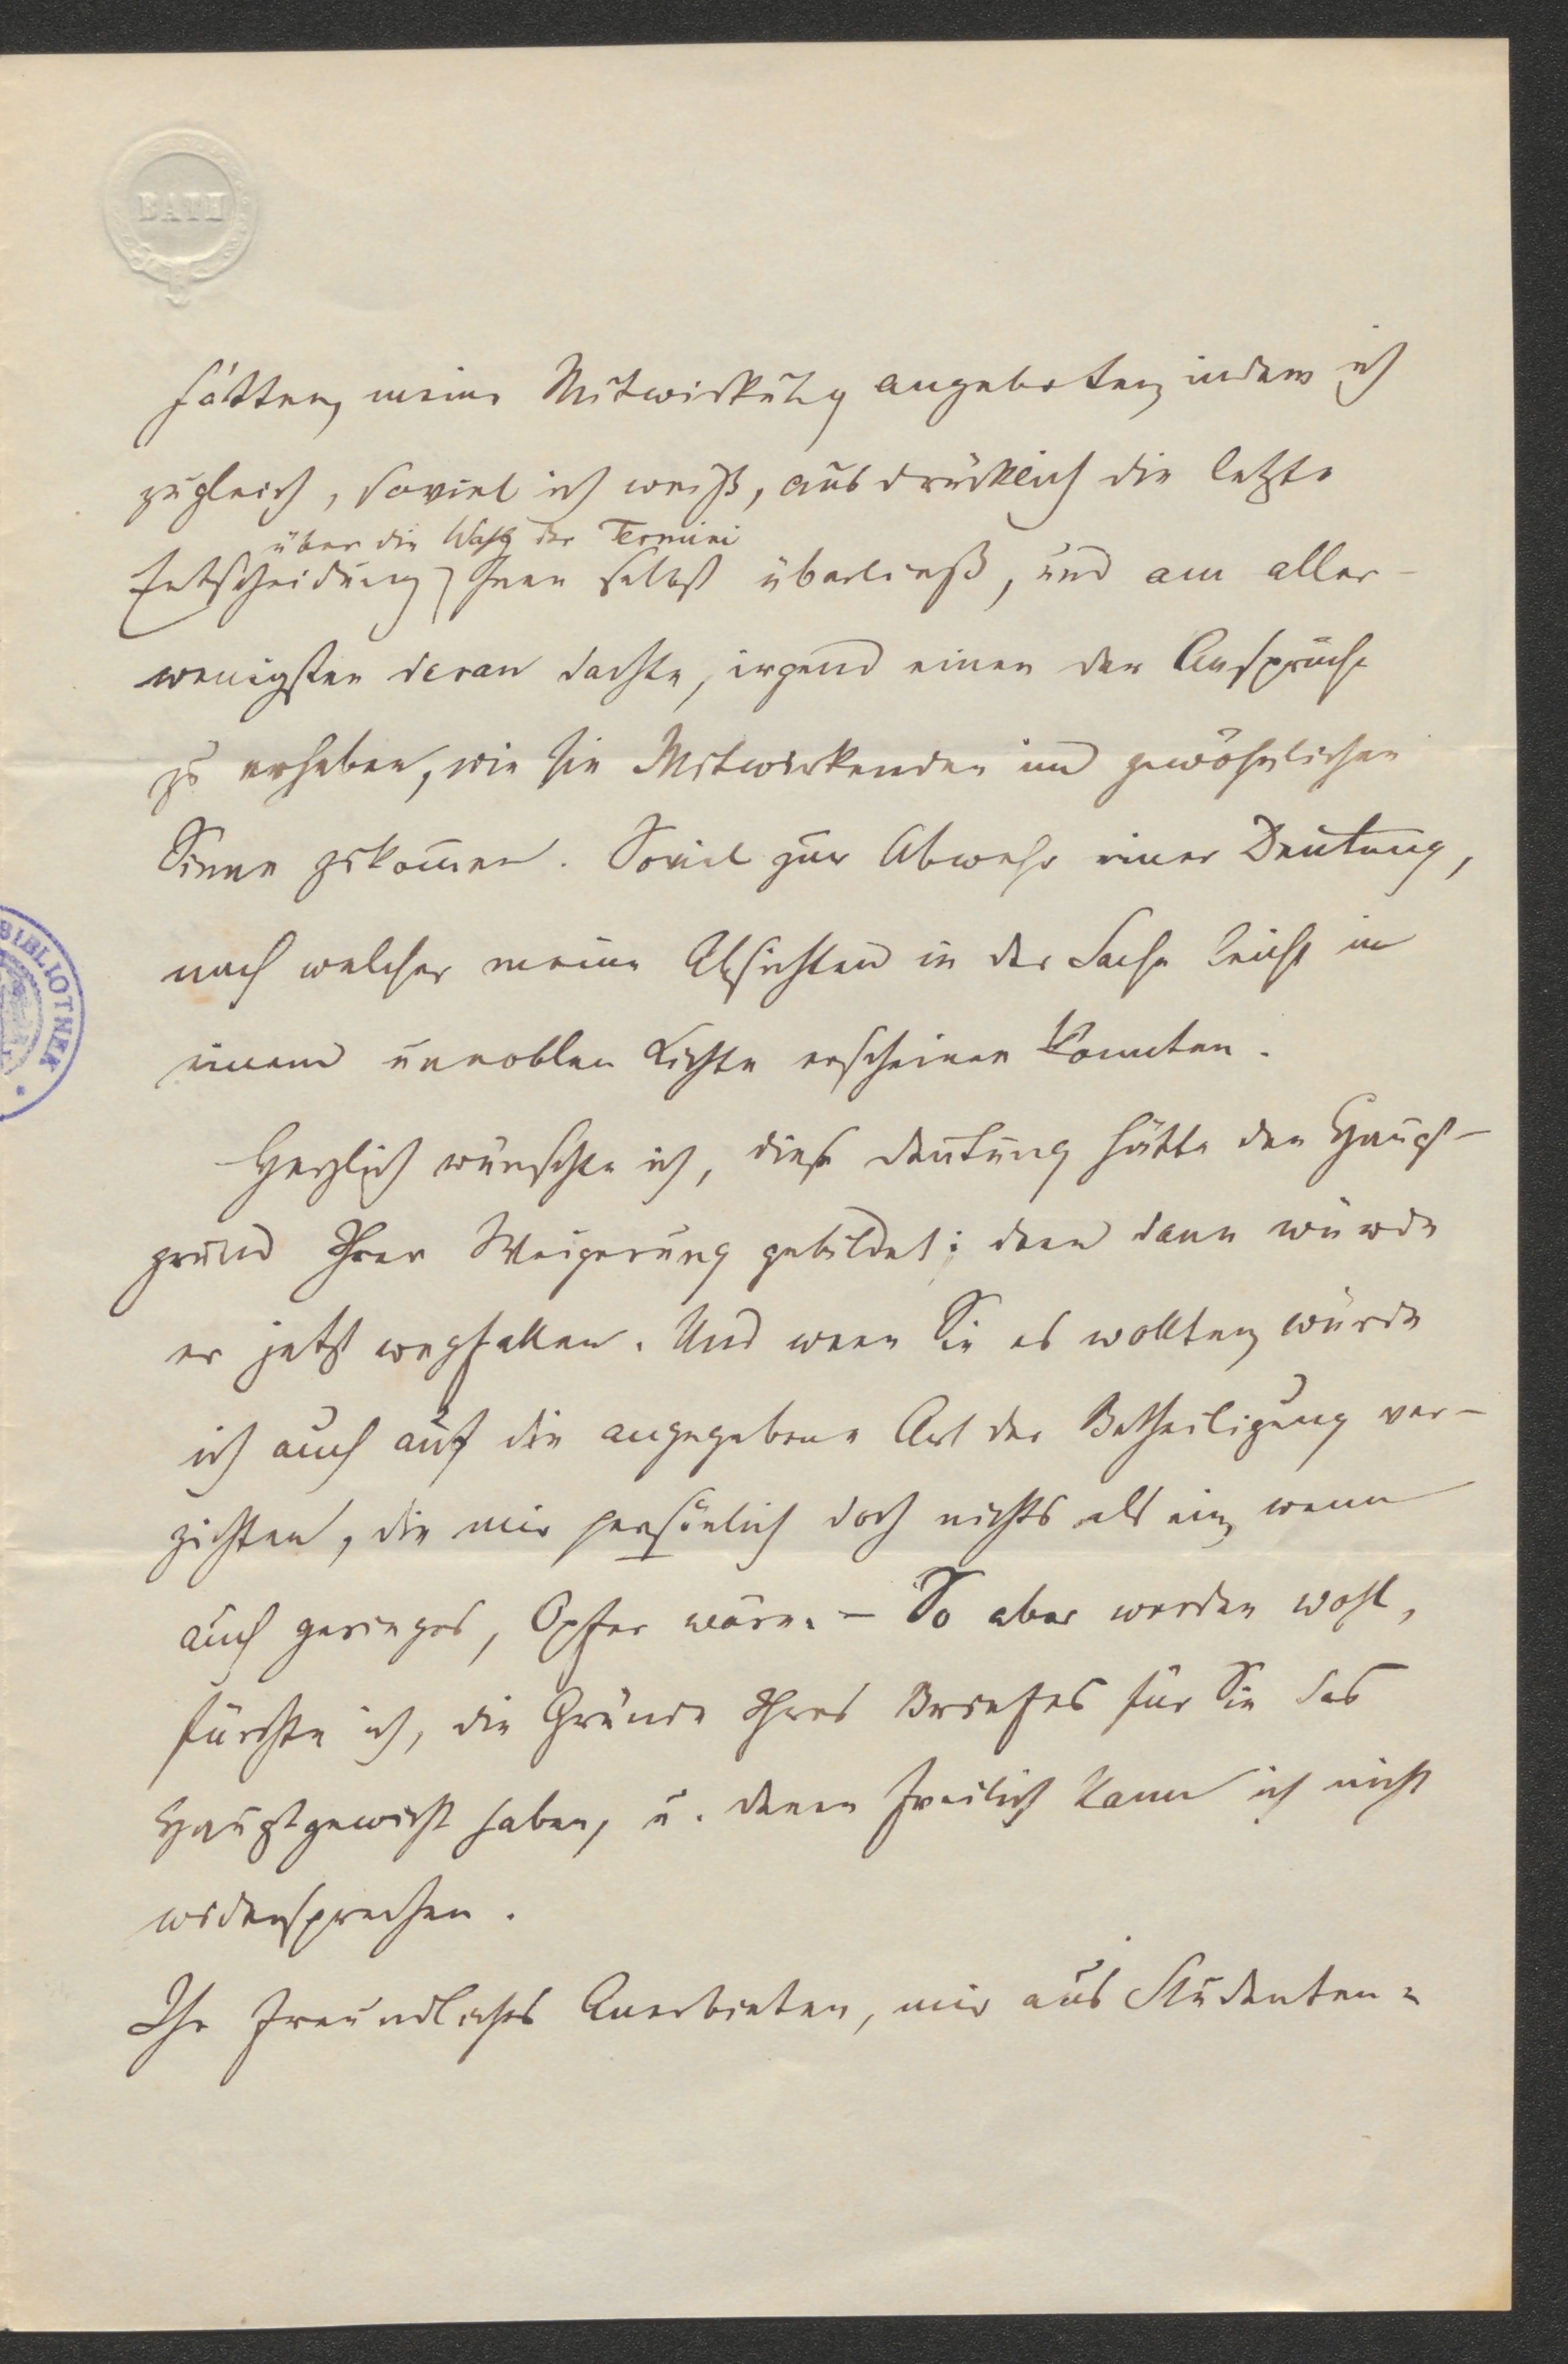 BATH
hätten, meine Mitwirkung angeboten, indem ich
zugleich, soviel ich weiß, ausdrücklich die letzte
über die Wahl der Termini
Entscheidung Ihnen selbst überließ, und am aller-
wenigsten daran dachte, irgend einen der Ansprüche
zu erheben, wie sie Mitwirkenden im gewöhnlichen
Sinne zukom̅en. Soviel zur Abwehr einer Deutung,
nach welcher meine Absichten in der Sache leicht in
einem unnoblen Lichte erscheinen konnten.
Herzlich wünschte ich, diese Deutung hätte den Haupt-
grund Ihrer Weigerung gebildet; denn dann würde
er jetzt wegfallen. Und wenn Sie es wollten, würde
ich auch auf die angegebene Art der Betheiligung ver-
zichten, die mir persönlich doch nichts als ein, wenn
auch geringes, Opfer wäre. – So aber werden wohl,
fürchte ich, die Gründe Ihres Briefes für Sie das
Hauptgewicht haben, u. denen freilich kann ich nicht
widersprechen.
Ihr freundliches Anerbieten, mir aus Studenten=
BIBLIOTHEK